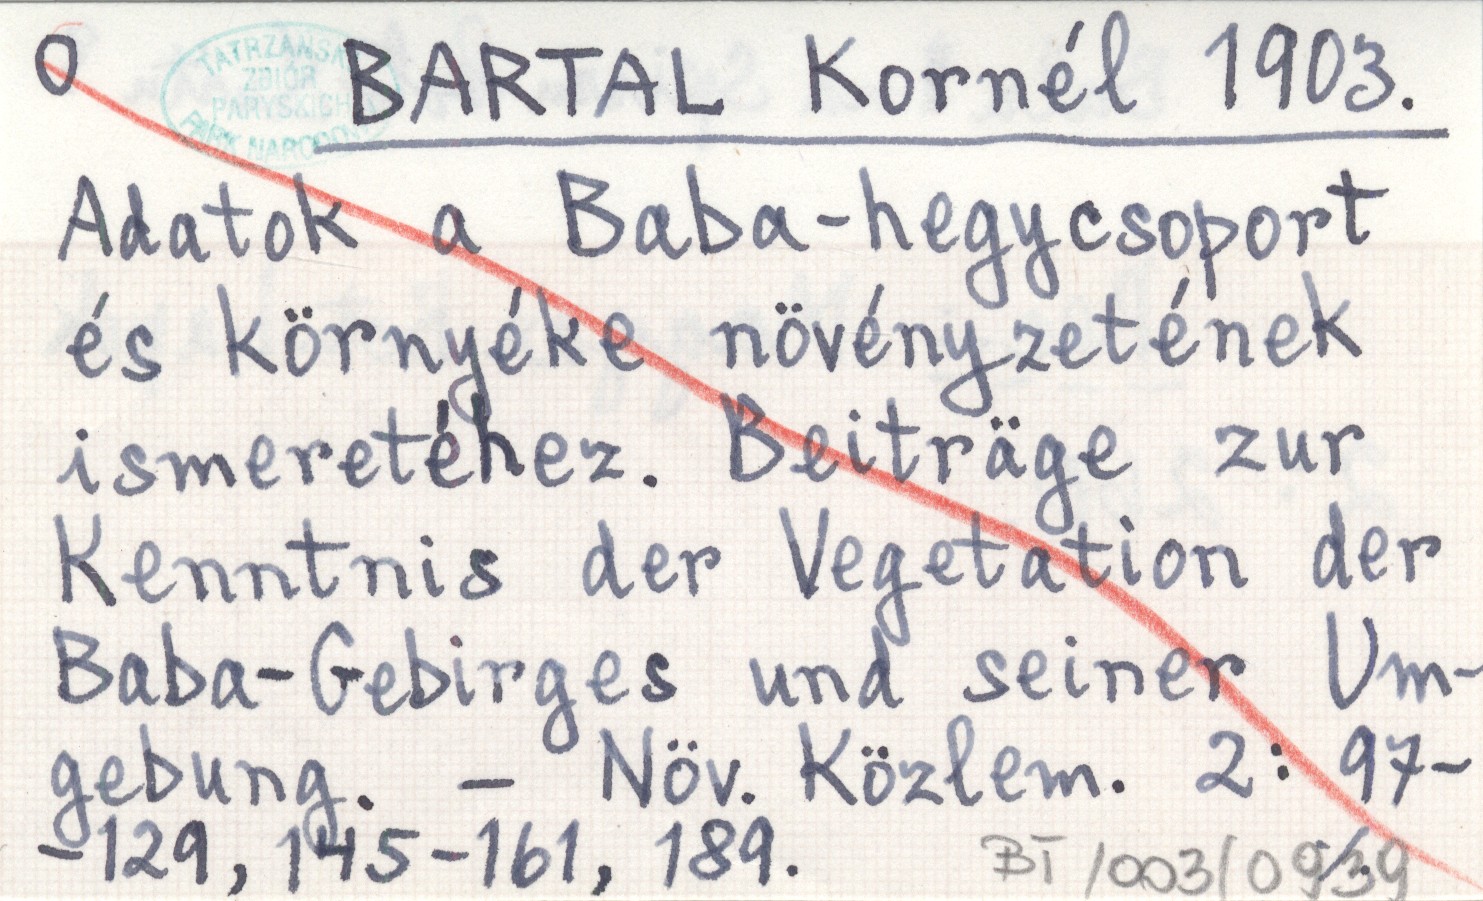 O
TATRZAŃSKI
ZBIÓR
PARYSKICH
PARK NARODOWY
BARTAL Kornél 1903.
Adatok a Baba-hegycsoport
és környéke növényzetének
ismeretéhez. Beiträge zur
Kenntnis der Vegetation der
Baba-Gebirges und seiner Um-
gebung. – Növ. Közlem. 2: 97-
-129, 145-161, 189.
BT /003/